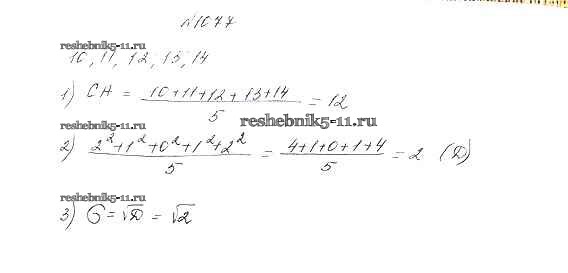 №1077
reshebnik5-11.ru
10, 11, 12, 13, 14
1) CH = (10+11+12+13+14)/5 = 12
reshebnik5-11.ru
reshebnik5-11.ru
2) (2²+1²+0²+1²+2²)/5 = (4+1+0+1+4)/5 = 2 (D)
reshebnik5-11.ru
3) G = √D = √2